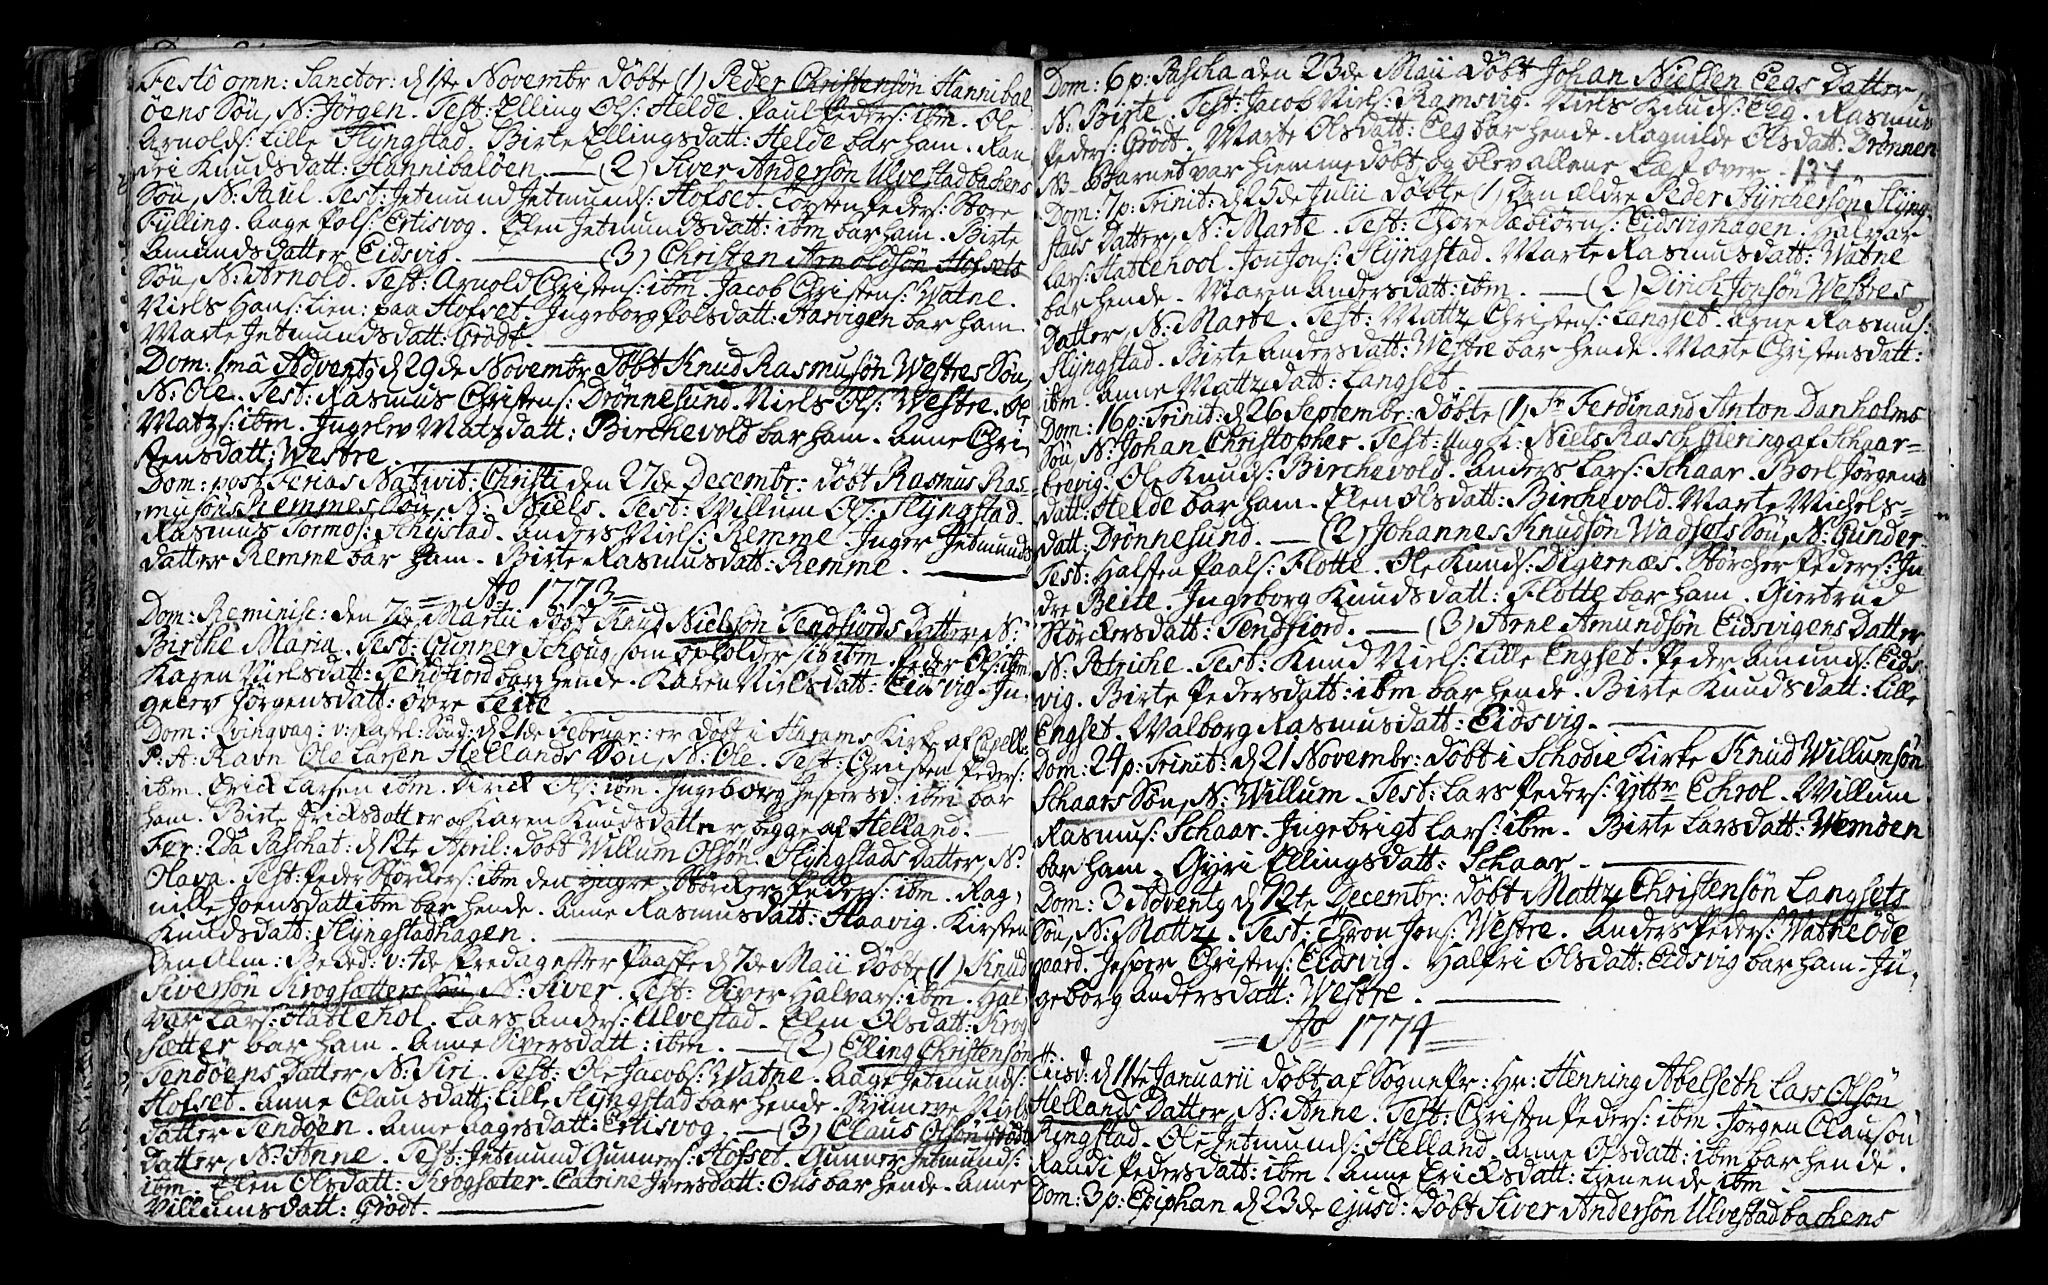 Festo omn: Sanctor: d 1ste Novembr döbte (1) Peder Christensön Hannibal
öens Sön, N: Jörgen. Test: Elling Ols: Helde. Paul Peders: ibm. Ole
Arnolds: Lille Slyngstad. Birte Ellingsdatt: Helde bar ham. Ran
dri Knudsdatt: Hannibalöen. — (2) Siver Andersön Ulvestadbachens
Sön, N: Paul. Test: Jetmund Jetmunds: Hofset. Torsten Peders: Store
Fylling. Aage Pols: Ertisvog. Elen Jetmundsdatt: ibm bar ham. Birte
Amunds Datter Eidsvig. — (3) Christen Arnoldsön Hofsets
Sön, N: Arnold. Test: Arnold Christens: ibm. Jacob Christens: Watne.
Niels Hans: tien: paa Hofset. Ingeborg Polsdatt: Harvigen bar ham.
Marte Jetmundsdatt: Grödt.
Dom: 1mâ Advent9 d 29de Novembr döbt Knud Rasmusön Westres Sön,
N: Ole. Test: Rasmus Christens: Drönnesund. Niels Ols: Westre. Ole
Matzs: ibm. Ingelev Matzdatt: Birchevold bar ham. Anne Chri
stensdatt: Westre.
Dom: post Ferias Nativit: Christi den 27de Decembr: döbt Rasmus Ras
musöns Remmes Sön, N: Niels. Test: Willum Ols: Slyngstad.
Rasmus Tormos: Schystad. Anders Niels: Remme. Inger Jetmunds
datter Remme bar ham. Birte Rasmusdatt: Remme.
= Ao 1773 =
Dom: Reminisc: den 7de Martii döbt Knud Nielsön Tendfiords Datter N:
Birthe Maria. Test: Gunner Schoug, som opholder sig ibm. Peder Ols: ibm.
Karen Nielsdatt: Tendfiord bar hende. Karen Nielsdatt: Eidsvig. In
gelev Jörgensdatt: övre Leite.
Dom: Qvinqvag: v: Fastel: Sönd: d 21de Februar: er döbt i Harams Kirke af Capell:
P: A: Ravn Ole Larsen Hellands Sön, N: Ole. Test: Christen Peders:
ibm. Erick Larsen ibm. Dirick Ols: ibm. Ingeborg Jespersd: ibm bar
ham. Birte Ericksdatter og Karen Knudsdatter begge af Helland.
Fer: 2dâ Paschat: d 12te April: döbt Willum Olsön Slyngstads Datter, N:
Olava. Test: Peder Störkers: ibm den yngre. Störcker Peders: ibm. Rag
nille Joensdatt ibm bar hende. Anne Rasmusdatt: Haavig. Kirsten
Knudsdatt: Slyngstadhagen.
Den Alm: Bededag v: 4de Fredag efter Paaske d 7de Maii döbte (1) Knud
Siversön Krogsætters Sön N: Siver. Test: Siver Halvars: ibm. Hal
var Lars: Hattehol. Lars Anders: Ulvestad. Elen Olsdatt: Krog
sætter bar ham. Anne Siversdatt: ibm. — (2) Elling Christensön
Tendöens Datter N: Siri. Test: Ole Jacobs: Watne. Aage Jetmunds:
Hofset. Anne Clausdatt: Lille Slyngstad bar hende. Synneve Niels
datter Tendöen. Anne Aagesdatt: Ertisvog. — (3) Claus Olsön Grödts
Datter, N: Anne. Test: Jetmund Gunners: Hofset. Gunner Jetmunds:
ibm. Elen Olsdatt: Krogsæter. Catrine Iversdatt: Ons bar hende. Anne
Villumsdatt: Grödt.
Dom: 6 p: Pascha den 23de Maii döbt Johan Nielsen Eegs Datter,
N: Birte. Test: Jacob Niels: Ramsvig. Niels Knuds: Eeg. Rasmus
Peders: Grödt. Marte Olsdatt: Eeg bar hende. Ragnilde Olsdatt: Drönnen
NB Barnet var hiemmedöbt og blev allene Læst over. 134
Dom: 7 p: Trinit: d 25de Julii döbte (1) Den ældre Peder Styrchersön Slyng
stads Datter, N: Marte. Test: Thore Sæbiörns: Eidsvighagen. Halvar
Lars: Hattehool. Jon Jons: Slyngstad. Marte Rasmusdatt: Watne
bar hende. Maren Andersdatt: ibm. — (2) Dirich Jonsön Westres
Datter, N: Marte. Test: Mattz Christens: Langset. Arne Rasmus:
Slyngstad. Birte Andersdatt: Westre bar hende. Marte Christensdatt:
ibm. Anne Mattzdatt: Langset.
Dom: 16 p: Trinit: d 26 Septembr: döbte (1) Sr Ferdinand Anton Danholms
Sön, N: Johan Christopher. Test: Niels Rasch Giering af Schaar=
brevig. Ole Knuds: Birchevold. Anders Lars: Schaar. Borl Jörgens
datt: Helde bar ham. Elen Olsdatt: Birchevold. Marte Michels=
datt: Drönnesund. — (2) Johannes Knudsön Wadsets Sön, N: Gunder
Test: Halsten Paals: Flotte. Ole Knuds: Digernæs. Störcher Peders: In
dre Beite. Ingeborg Knudsdatt: Flotte bar ham. Giertrud
Störckersdatt: Tendfiord. — (3) Arne Amundsön Eidsvigens Datter
N: Petriche. Test: Knud Niels: Lille Engset. Peder Amunds: Eids
vig. Birte Pedersdatt: ibm bar hende. Birte Knudsdatt: Lille
Engset. Walborg Rasmusdatt: Eidsvig.
Dom: 24 p: Trinit: d 21 Novembr: döbt i Schodie Kirke Knud Willumsön
Schaars Sön, N: Willum. Test: Lars Peders: Ytter Echrol. Willum
Rasmus: Schaar. Ingebrigt Lars: ibm. Birte Larsdatt: Wemöen
bar ham. Gyri Ellingsdatt: Schaar.
Dom: 3 Advent9 d 12te Decembr: döbt Mattz Christensön Langsets
Sön, N: Mattz. Test: Thron Jons: Westre. Anders Peders: Watne Öde
gaard. Jesper Christens: Eidsvig. Halfri Olsdatt: Eidsvig bar ham. In
geborg Andersdatt: Westre.
= Ao 1774 =
d 11te Januarii döbt af SognePr: Hr: Henning Abelseth Lars Olsön
Hellands Datter, N: Anne. Test: Christen Peders: ibm. Jörgen Clausön
Ringstad. Ole Jetmunds: Helland. Anne Olsdatt: ibm bar hende.
Randi Pedersdatt: ibm. Anne Ericksdatt: tienende ibm.
Dom: 3 p: Epiphan d 23de ejusd: döbt Siver Andersön Ulvestadbachens